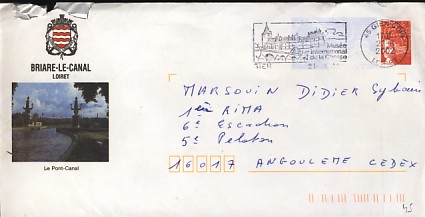 BRIARE-LE-CANAL
LOIRET
Le Pont-Canal
Musée
International
de la Chasse
GIEN
45 GIEN
MARSOUIN DIDIER Sylvain
1er RIMA
6e Escadron
5e Peloton
16017 ANGOULEME CEDEX
45